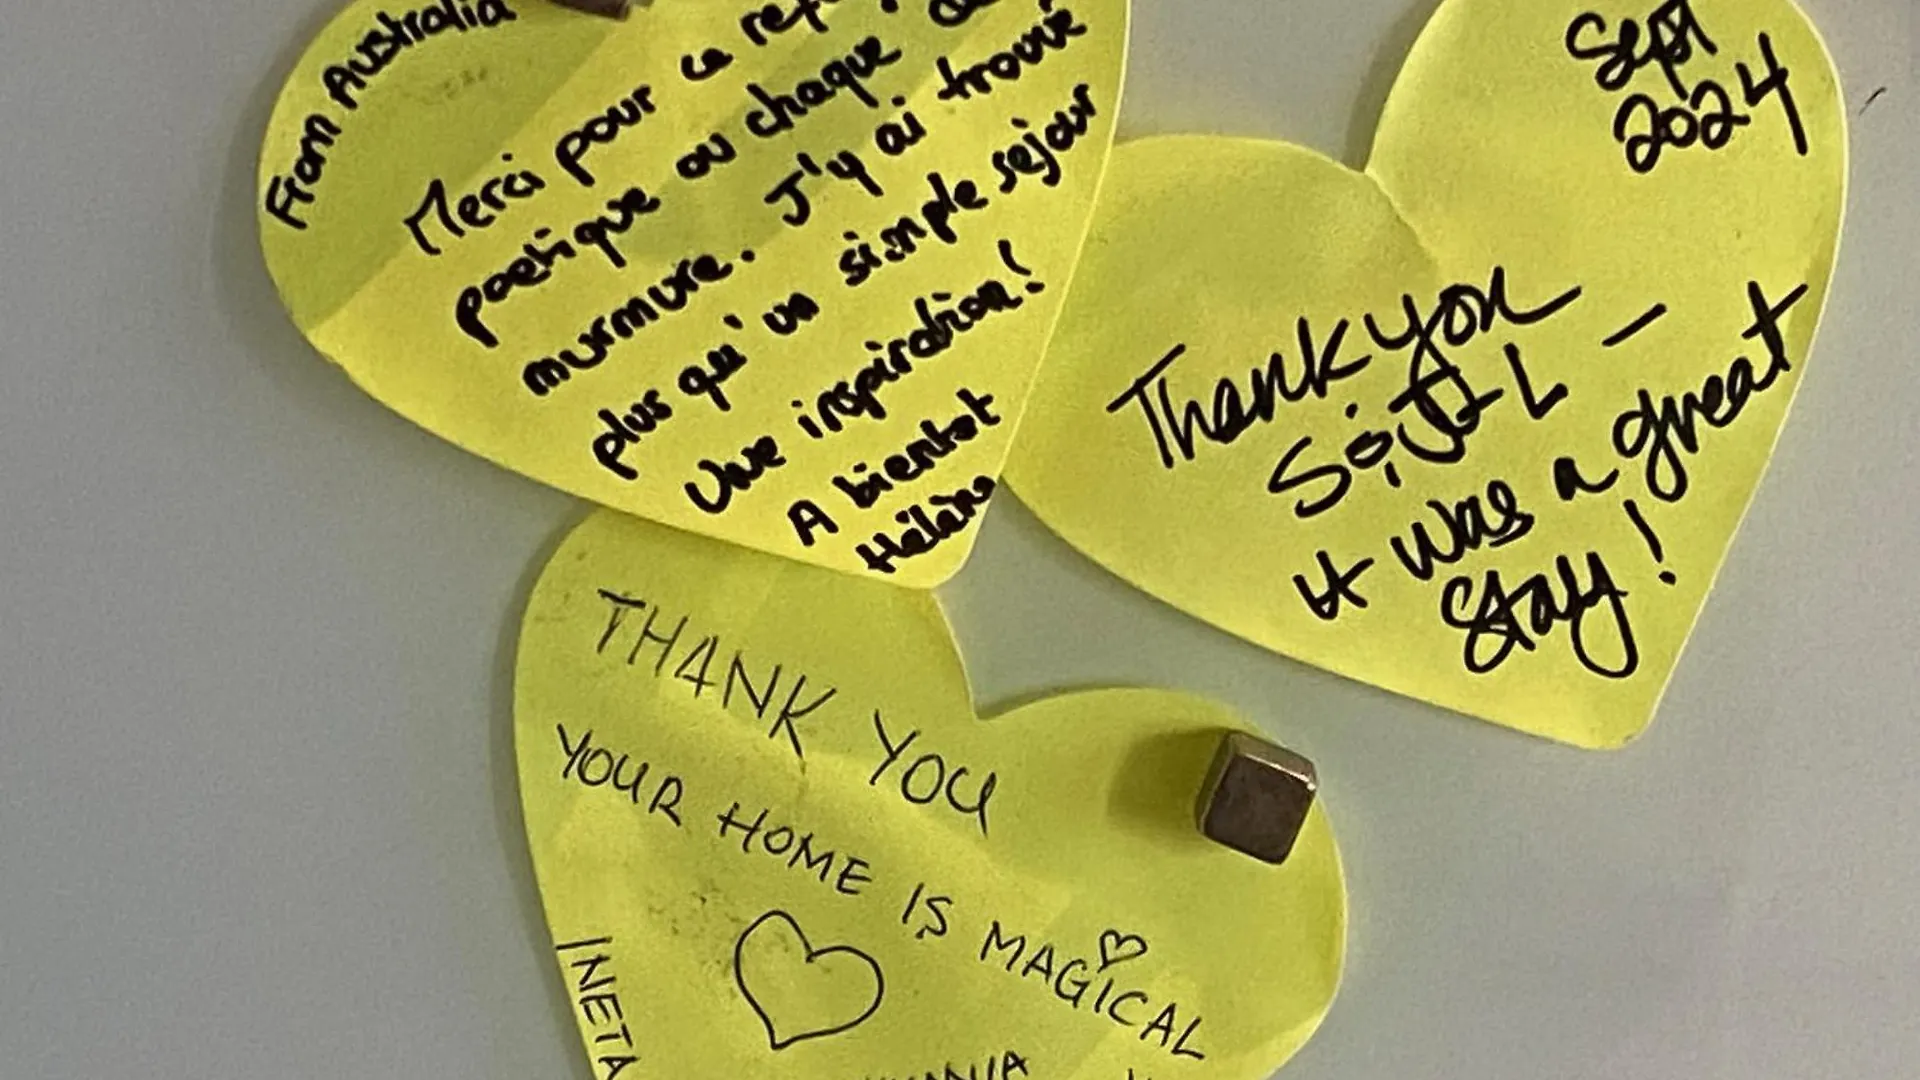 From Australia
Merci pour ce
poetique ou chaque
murmure. J'y ai trouvé
plus qu'un simple séjour
Une inspiration!
A bientot
Hélène
Sept
2024
Thank you
It was a great
stay!
THANK YOU
YOUR HOME IS MAGICAL
INETA